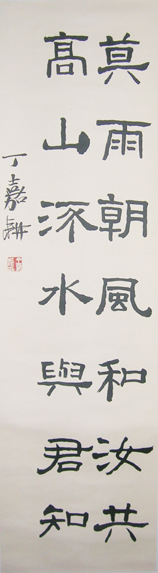 莫雨朝風和汝共
高山流水與君知
丁嘉耕